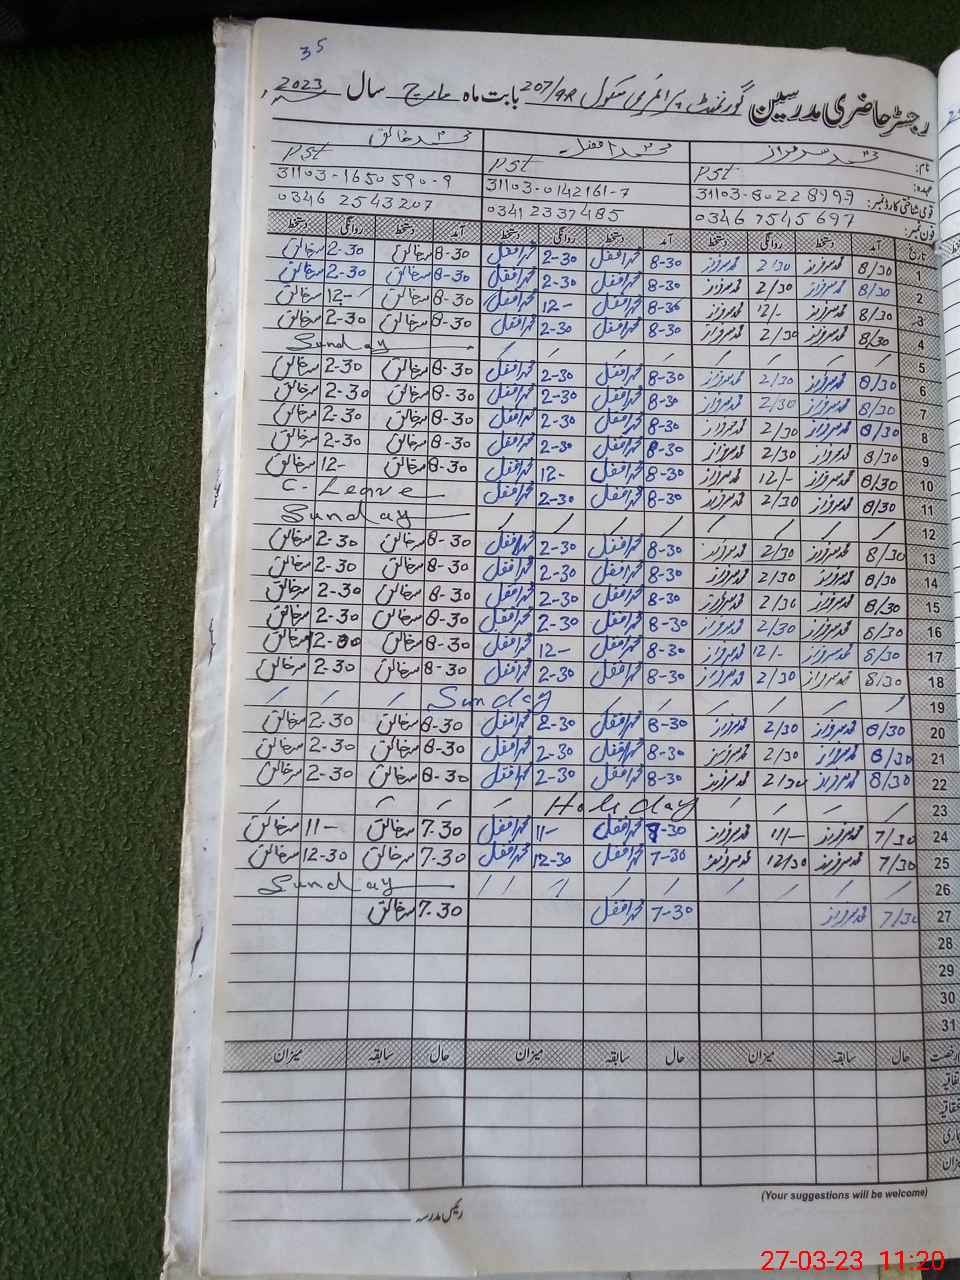 35
رجسٹر حاضری مدرسین گورنمنٹ پرائمری سکول 207/9R بابت ماہ مارچ سال 2023
نام: محمد سرفراز محمد افضل محمد خالق
عہدہ: PST PST PST
قومی شناختی کارڈ نمبر: 31103-80228999 31103-0142161-7 31103-1650590-9
فون نمبر: 0346 7545697 0341 2337485 0346 2543207
تاریخ آمد دستخط روانگی دستخط آمد دستخط روانگی دستخط آمد دستخط روانگی دستخط
1 8/30 محمد سرفراز 2/30 محمد سرفراز 8-30 محمد افضل 2-30 محمد افضل 8-30 م خالق 2-30 م خالق
2 8/30 محمد سرفراز 2/30 محمد سرفراز 8-30 محمد افضل 2-30 محمد افضل 8-30 م خالق 2-30 م خالق
3 8/30 محمد سرفراز 12/- محمد سرفراز 8-30 محمد افضل 12- محمد افضل 8-30 م خالق 12- م خالق
4 8/30 محمد سرفراز 2/30 محمد سرفراز 8-30 محمد افضل 2-30 محمد افضل 8-30 م خالق 2-30 م خالق
5 Sunday
6 8/30 محمد سرفراز 2/30 محمد سرفراز 8-30 محمد افضل 2-30 محمد افضل 8-30 م خالق 2-30 م خالق
7 8/30 محمد سرفراز 2/30 محمد سرفراز 8-30 محمد افضل 2-30 محمد افضل 8-30 م خالق 2-30 م خالق
8 8/30 محمد سرفراز 2/30 محمد سرفراز 8-30 محمد افضل 2-30 محمد افضل 8-30 م خالق 2-30 م خالق
9 8/30 محمد سرفراز 2/30 محمد سرفراز 8-30 محمد افضل 2-30 محمد افضل 8-30 م خالق 2-30 م خالق
10 8/30 محمد سرفراز 12/- محمد سرفراز 8-30 محمد افضل 12- محمد افضل 8-30 م خالق 12- م خالق
11 8/30 محمد سرفراز 2/30 محمد سرفراز 8-30 محمد افضل 2-30 محمد افضل C. Leave
12 Sunday
13 8/30 محمد سرفراز 2/30 محمد سرفراز 8-30 محمد افضل 2-30 محمد افضل 8-30 م خالق 2-30 م خالق
14 8/30 محمد سرفراز 2/30 محمد سرفراز 8-30 محمد افضل 2-30 محمد افضل 8-30 م خالق 2-30 م خالق
15 8/30 محمد سرفراز 2/30 محمد سرفراز 8-30 محمد افضل 2-30 محمد افضل 8-30 م خالق 2-30 م خالق
16 8/30 محمد سرفراز 2/30 محمد سرفراز 8-30 محمد افضل 2-30 محمد افضل 8-30 م خالق 2-30 م خالق
17 8/30 محمد سرفراز 12/- محمد سرفراز 8-30 محمد افضل 12- محمد افضل 8-30 م خالق 12-00 م خالق
18 8/30 محمد سرفراز 2/30 محمد سرفراز 8-30 محمد افضل 2-30 محمد افضل 8-30 م خالق 2-30 م خالق
19 Sunday
20 8/30 محمد سرفراز 2/30 محمد سرفراز 8-30 محمد افضل 2-30 محمد افضل 8-30 م خالق 2-30 م خالق
21 8/30 محمد سرفراز 2/30 محمد سرفراز 8-30 محمد افضل 2-30 محمد افضل 8-30 م خالق 2-30 م خالق
22 8/30 محمد سرفراز 2/30 محمد سرفراز 8-30 محمد افضل 2-30 محمد افضل 8-30 م خالق 2-30 م خالق
23 Holiday
24 7/30 محمد سرفراز 11/- محمد سرفراز 7-30 محمد افضل 11- محمد افضل 7.30 م خالق 11- م خالق
25 7/30 محمد سرفراز 12/30 محمد سرفراز 7-30 محمد افضل 12-30 محمد افضل 7.30 م خالق 12-30 م خالق
26 Sunday
27 7/30 محمد سرفراز 7-30 محمد افضل 7.30 م خالق
28
29
30
31
حال سابقہ میزان حال سابقہ میزان حال سابقہ میزان
(Your suggestions will be welcome)
رئیس مدرسہ
27-03-23 11:20